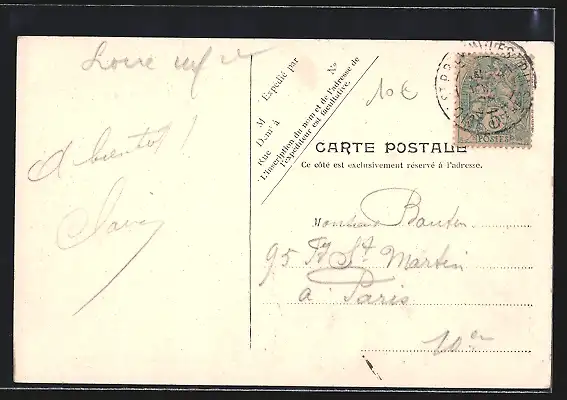 Loire inf re
A bientôt !
Expédié par
M
Demt à
Rue
No
L'inscription du nom et de l'adresse de
l'expéditeur est facultative.
10€
POSTES
CARTE POSTALE
Ce côté est exclusivement réservé à l'adresse.
Monsieur
95 St. Martin
à Paris
10er